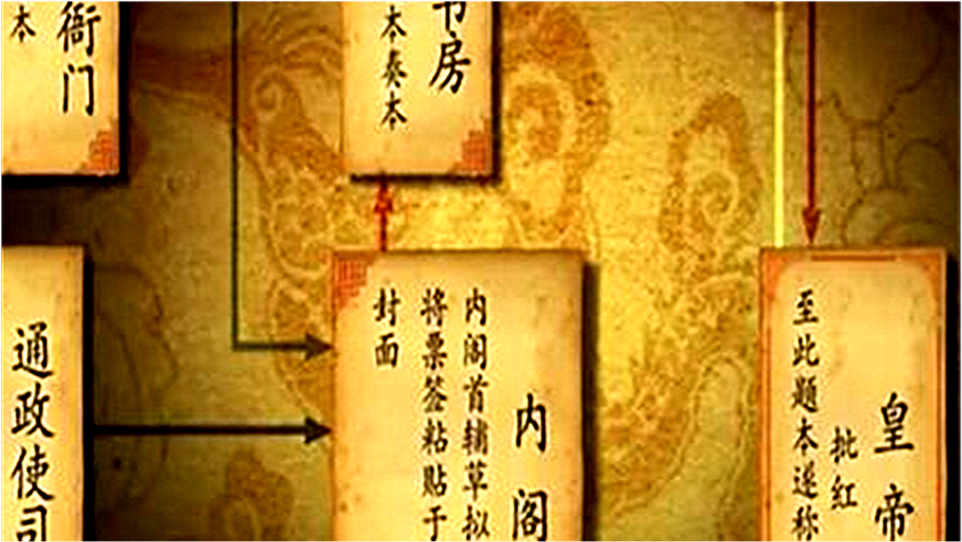 衙门
本
书房
本奏本
通政使司
内阁
内阁首辅草拟
将票签粘贴于
封面
皇帝
批红
至此题本遂称